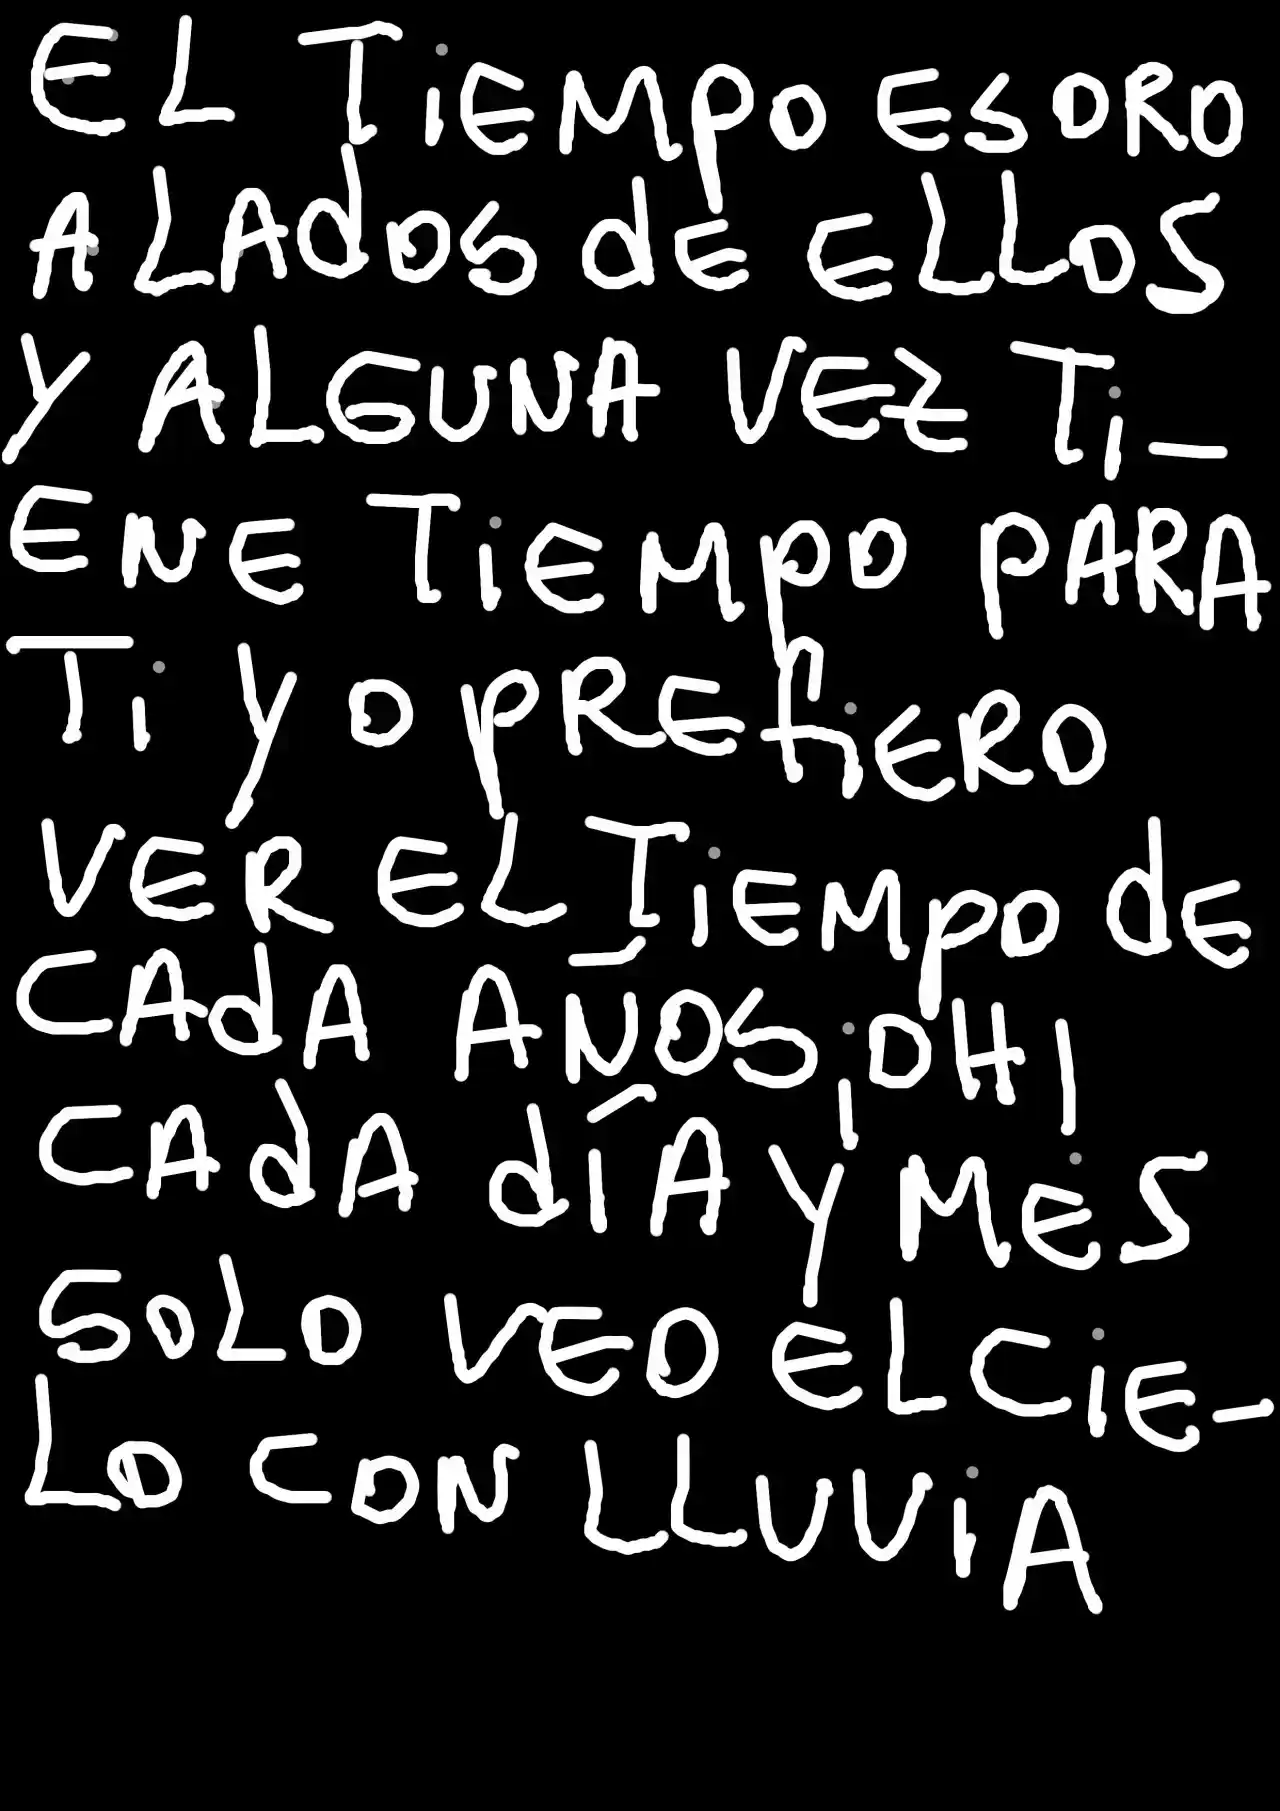 EL TiEMPO ES ORO
A LAdOS dE ELLOS
Y ALGUNA VEZ Ti_
ENE TiEMPO PARA
Ti Y O PREfiERO
VER EL TiEMPO dE
CAdA AÑOS ¡OH!
CAdA dÍA Y MES
SOLO VEO EL CiE-
LO CON LLUViA